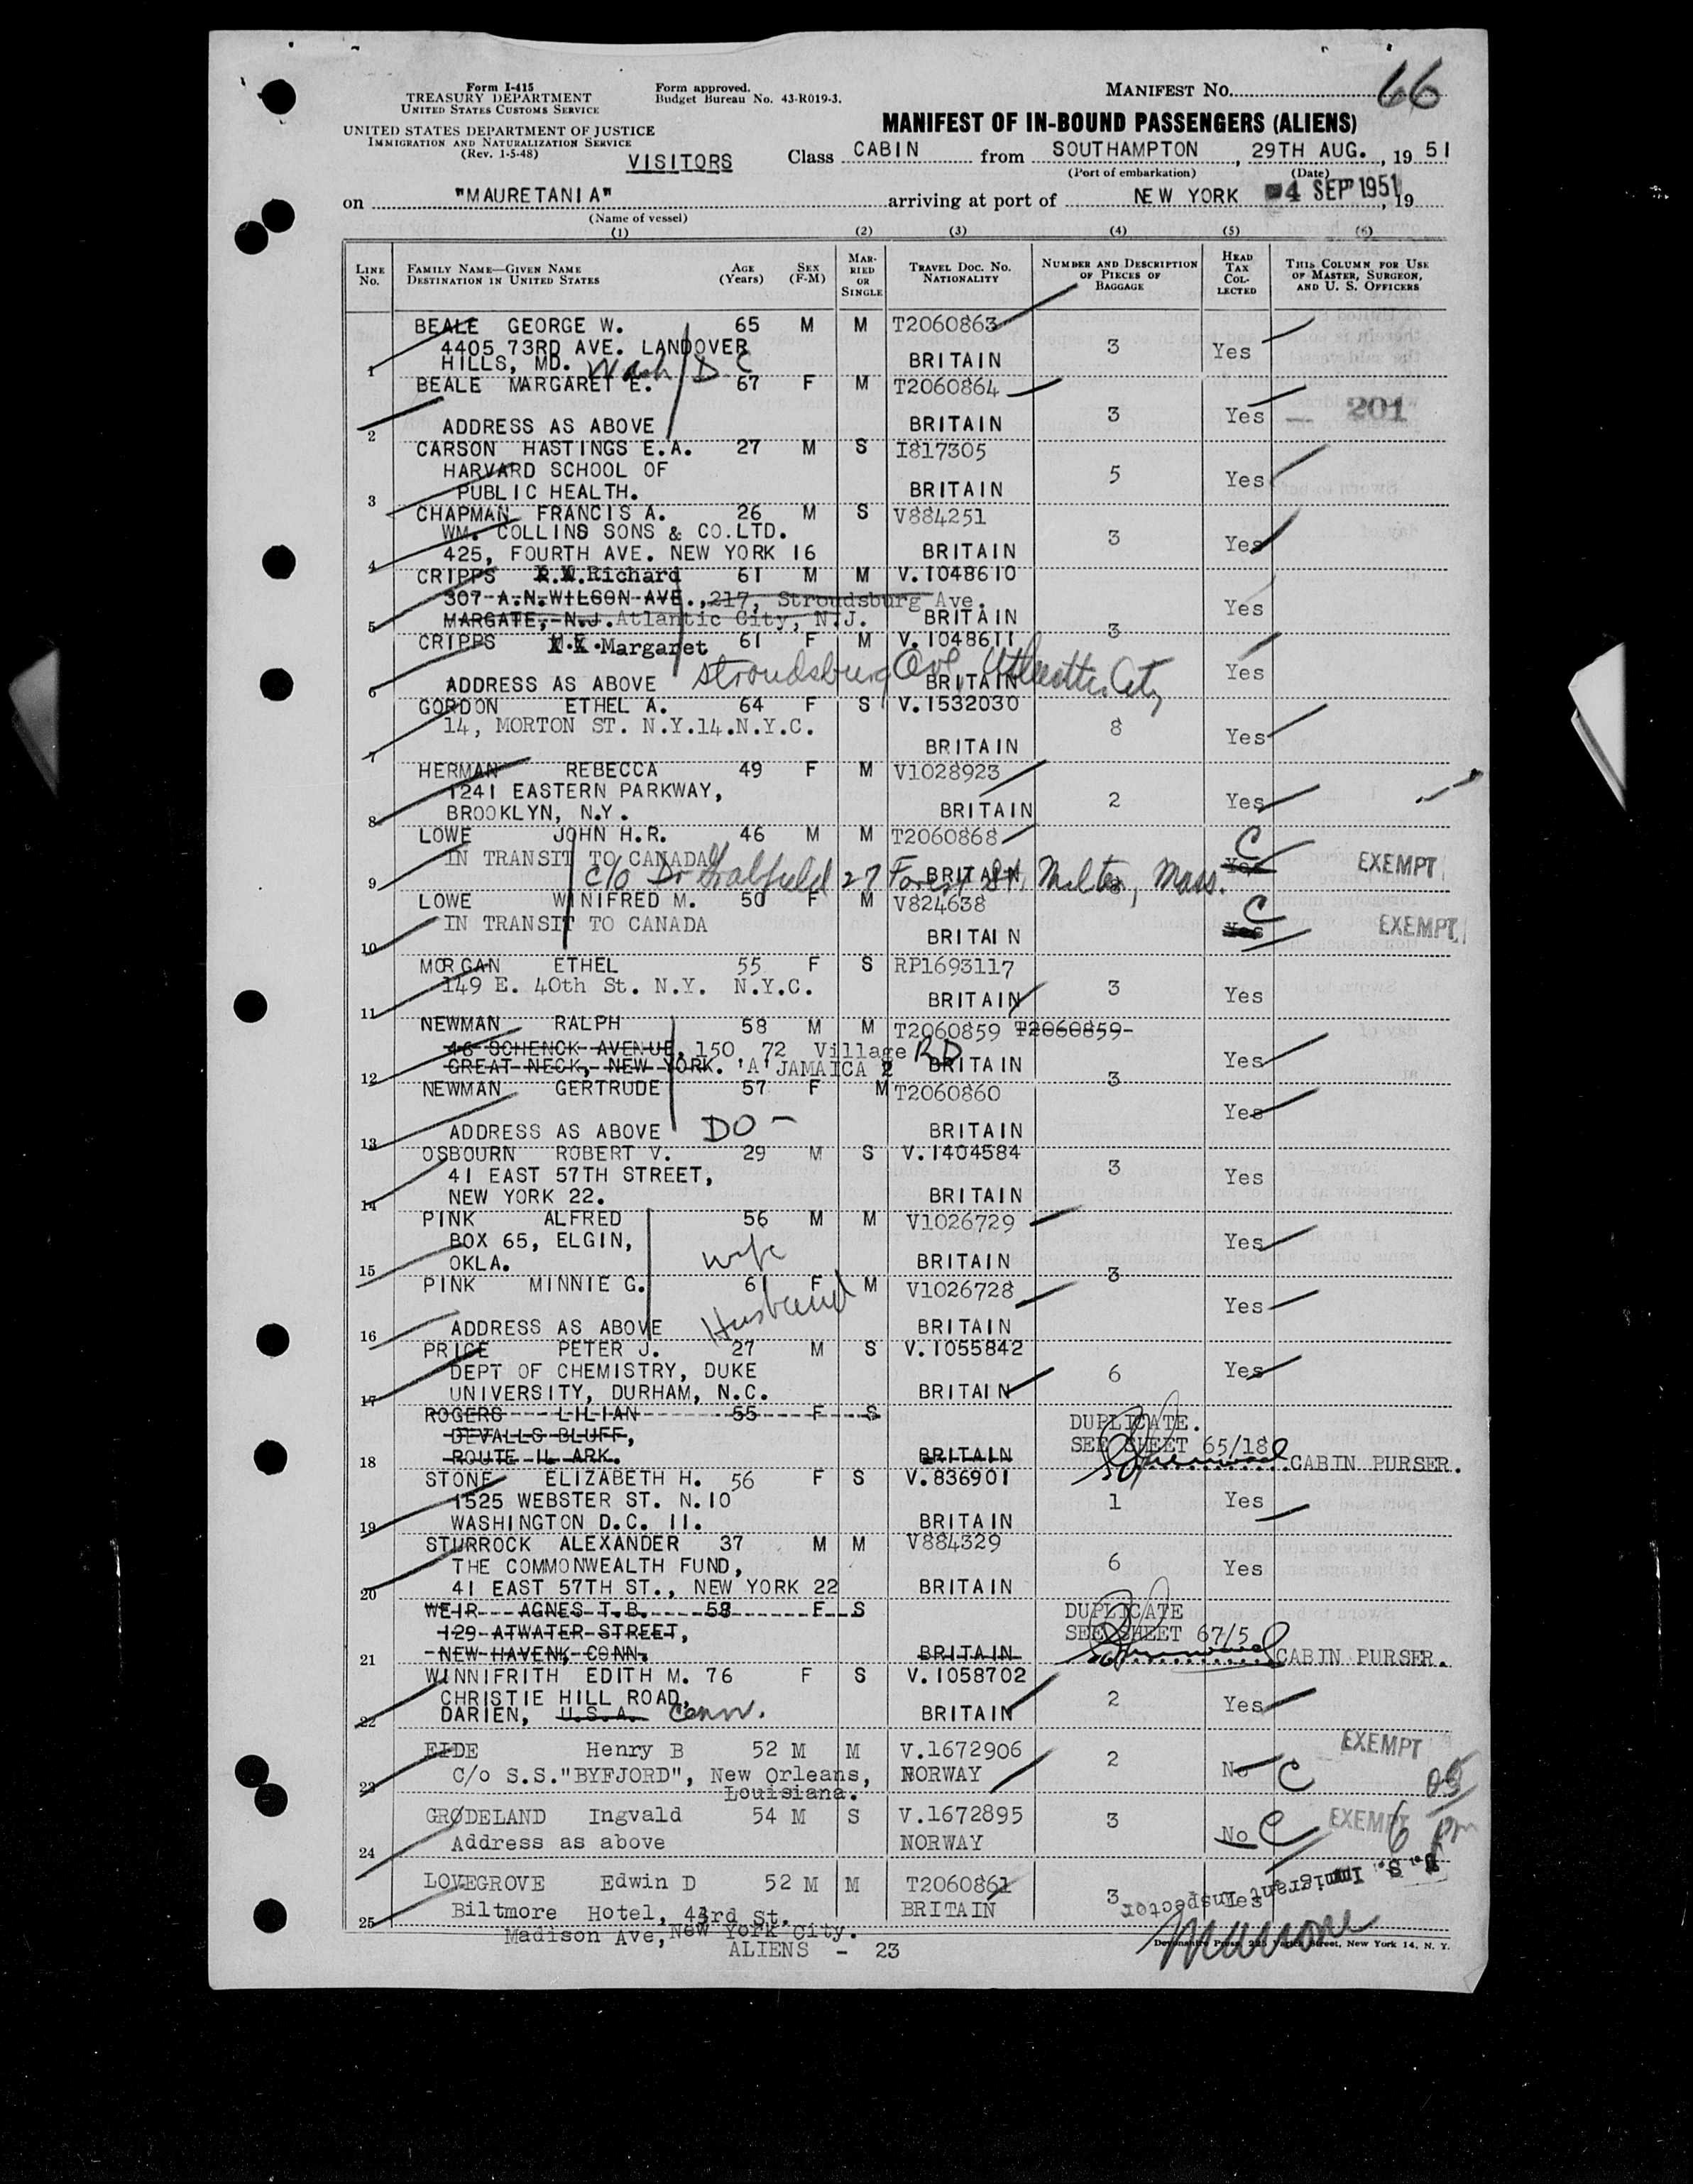 Form I-415
TREASURY DEPARTMENT
UNITED STATES CUSTOMS SERVICE
Form approved.
Budget Bureau No. 43-R019-3.
MANIFEST NO. 66
UNITED STATES DEPARTMENT OF JUSTICE
IMMIGRATION AND NATURALIZATION SERVICE
(Rev. 1-5-48)
VISITORS
MANIFEST OF IN-BOUND PASSENGERS (ALIENS)
Class CABIN from SOUTHAMPTON, 29TH AUG., 19 51
(Port of embarkation) (Date)
on "MAURETANIA" arriving at port of NEW YORK 4 SEP 1951, 19
(Name of vessel)
(1) (2) (3) (4) (5) (6)
LINE NO. FAMILY NAME—GIVEN NAME DESTINATION IN UNITED STATES AGE (Years) SEX (F-M) MARRIED OR SINGLE TRAVEL DOC. NO. NATIONALITY NUMBER AND DESCRIPTION OF PIECES OF BAGGAGE HEAD TAX COLLECTED THIS COLUMN FOR USE OF MASTER, SURGEON, AND U. S. OFFICERS
BEALE GEORGE W. 65 M M T2060863
4405 73RD AVE. LANDOVER 3 Yes
1 HILLS, MD. Wash D C BRITAIN
BEALE MARGARET E. 67 F M T2060864
3 Yes — 201
2 ADDRESS AS ABOVE BRITAIN
CARSON HASTINGS E.A. 27 M S I817305
HARVARD SCHOOL OF 5 Yes
3 PUBLIC HEALTH. BRITAIN
CHAPMAN FRANCIS A. 26 M S V884251
WM. COLLINS SONS & CO.LTD. 3 Yes
4 425, FOURTH AVE. NEW YORK 16 BRITAIN
CRIPPS R.W. Richard 61 M M V.1048610
307 A.N.WILSON AVE., 217, Stroudsburg Ave. Yes
5 MARGATE, N.J. Atlantic City, N.J. BRITAIN 3
CRIPPS M.E. Margaret 61 F M V.1048611
Stroudsburg Ave, Atlantic City Yes
6 ADDRESS AS ABOVE BRITAIN
GORDON ETHEL A. 64 F S V.1532030
14, MORTON ST. N.Y.14.N.Y.C. 8 Yes
7 BRITAIN
HERMAN REBECCA 49 F M V1028923
1241 EASTERN PARKWAY, 2 Yes
8 BROOKLYN, N.Y. BRITAIN
LOWE JOHN H.R. 46 M M T2060868 C
IN TRANSIT TO CANADA Yes EXEMPT
9 c/o Dr 27 Forest St, Milton, Mass. BRITAIN
LOWE WINIFRED M. 50 F M V824638 C
IN TRANSIT TO CANADA Yes EXEMPT
10 BRITAIN
MORGAN ETHEL 55 F S RP1693117
149 E. 40th St. N.Y. N.Y.C. 3 Yes
11 BRITAIN
NEWMAN RALPH 58 M M T2060859 T2060859-
46 SCHENCK AVENUE, 150 72 Village RD Yes
12 GREAT NECK, NEW YORK. 'A' JAMAICA 2 BRITAIN 3
NEWMAN GERTRUDE 57 F M T2060860
Yes
13 ADDRESS AS ABOVE DO - BRITAIN
OSBOURN ROBERT V. 29 M S V.1404584
41 EAST 57TH STREET, 3 Yes
14 NEW YORK 22. BRITAIN
PINK ALFRED 56 M M V1026729
BOX 65, ELGIN, wife Yes
15 OKLA. BRITAIN 3
PINK MINNIE G. 61 F M V1026728
Husband Yes
16 ADDRESS AS ABOVE BRITAIN
PRICE PETER J. 27 M S V.1055842
DEPT OF CHEMISTRY, DUKE 6 Yes
17 UNIVERSITY, DURHAM, N.C. BRITAIN
ROGERS LILIAN 55 F S DUPLICATE.
DEVALLS BLUFF, SEE SHEET 65/18
18 ROUTE II ARK. BRITAIN CABIN PURSER.
STONE ELIZABETH H. 56 F S V.836901
1525 WEBSTER ST. N.10 1 Yes
19 WASHINGTON D.C. 11. BRITAIN
STURROCK ALEXANDER 37 M M V884329
THE COMMONWEALTH FUND, 6 Yes
20 41 EAST 57TH ST., NEW YORK 22 BRITAIN
WEIR AGNES T.B. 58 F S DUPLICATE
129 ATWATER STREET, SEE SHEET 67/5
21 NEW HAVENK CONN. BRITAIN CABIN PURSER.
WINNIFRITH EDITH M. 76 F S V.1058702
CHRISTIE HILL ROAD, 2 Yes
22 DARIEN, U.S.A. Conn. BRITAIN
EIDE Henry B 52 M M V.1672906 2 EXEMPT
C/o S.S."BYFJORD", New Orleans, NORWAY No C
23 Louisiana.
GRØDELAND Ingvald 54 M S V.1672895 3 EXEMPT
Address as above NORWAY No C 6 pm
24
U. S. Immigrant Inspector
LOVEGROVE Edwin D 52 M M T2060861
Biltmore Hotel, 43rd St. BRITAIN 3 Yes
25 Madison Ave, New York City.
ALIENS - 23
Devonshire Press, 225 Varick Street, New York 14, N. Y.